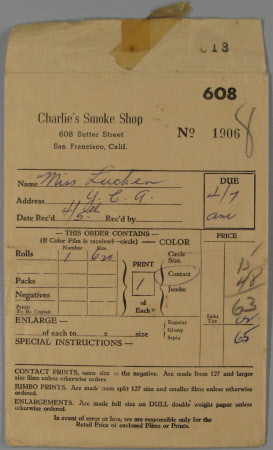 613
608
Charlie's Smoke Shop
608 Sutter Street
San Francisco, Calif.
Nº 1906
8
Name Miss Lucken
DUE
Address Y. C. A.
4/7
Date Rec'd 4/5 Rec'd by
am
— THIS ORDER CONTAINS —
(If Color Film is received—circle) — COLOR
PRICE
Number Size
Rolls 1 620
PRINT
Circle Size.
15
Packs
1
Contact
48
Negatives
of
Jumbo
Prints To Be Copied
Each
63
ENLARGE —
Regular
Sales Tax
02
of each to x size
Glossy
Sepia
65
SPECIAL INSTRUCTIONS:
CONTACT PRINTS, same size as the negative. Are made from 127 and larger
size films unless otherwise orders
RIMBO PRINTS. Are made from split 127 size and smaller films unless otherwise
ordered.
ENLARGEMENTS. Are made full size on DULL double weight paper unless
otherwise ordered.
In event of error or loss, we are responsible only for the
Retail Price of enclosed Films or Prints.